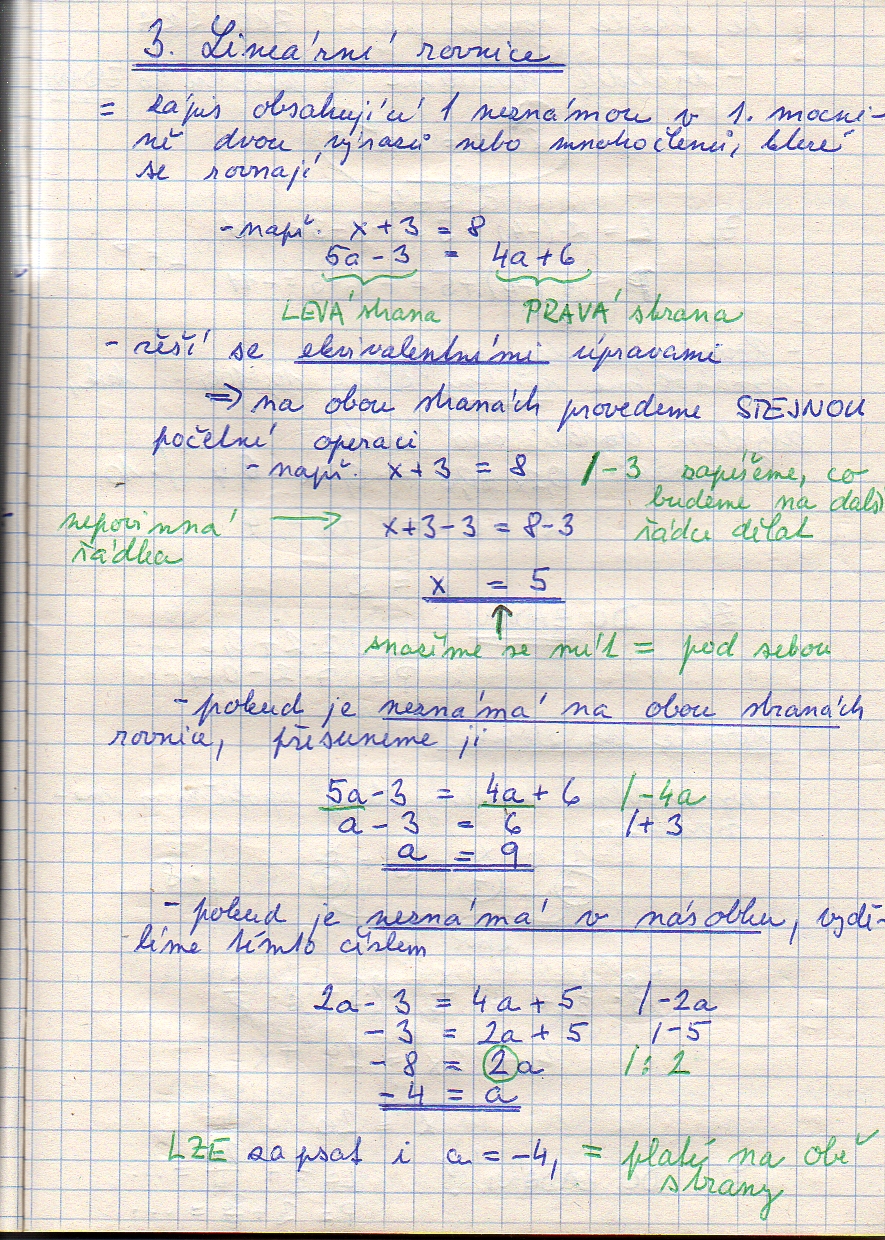 3. Lineární rovnice
= zápis obsahující 1 neznámou v 1. mocni-
ně dvou výrazů nebo mnohočlenů, které
se rovnají
- např. x + 3 = 8
5a - 3 = 4a + 6
LEVÁ strana PRAVÁ strana
- řeší se ekvivalentními úpravami
⇒ na obou stranách provedeme STEJNOU
početní operaci
- např. x + 3 = 8 /-3 zapíšeme, co
budeme na další
nepovinná → x+3-3 = 8-3 řádce dělat
řádka
x = 5
↑
snažíme se mít = pod sebou
- pokud je neznámá na obou stranách
rovnice, přesuneme ji
5a - 3 = 4a + 6 /-4a
a - 3 = 6 /+3
a = 9
- pokud je neznámá v násobku, vydě-
líme tímto číslem
2a - 3 = 4a + 5 /-2a
- 3 = 2a + 5 /-5
- 8 = 2a /: 2
- 4 = a
LZE zapsat i a = -4, = platí na obě
strany